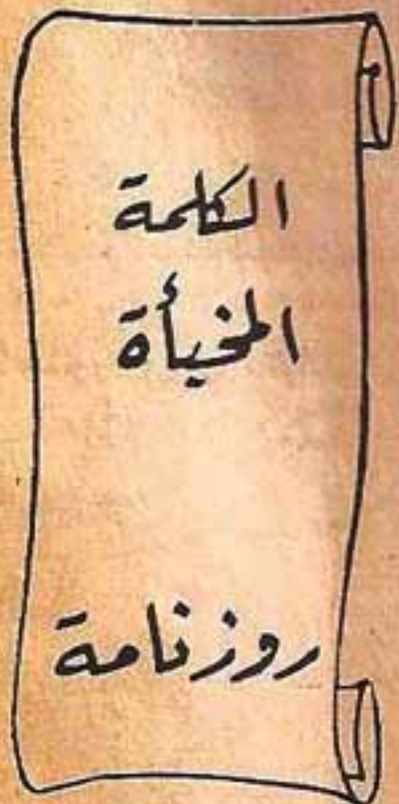 الكلمة
المخبأة
روزنامة